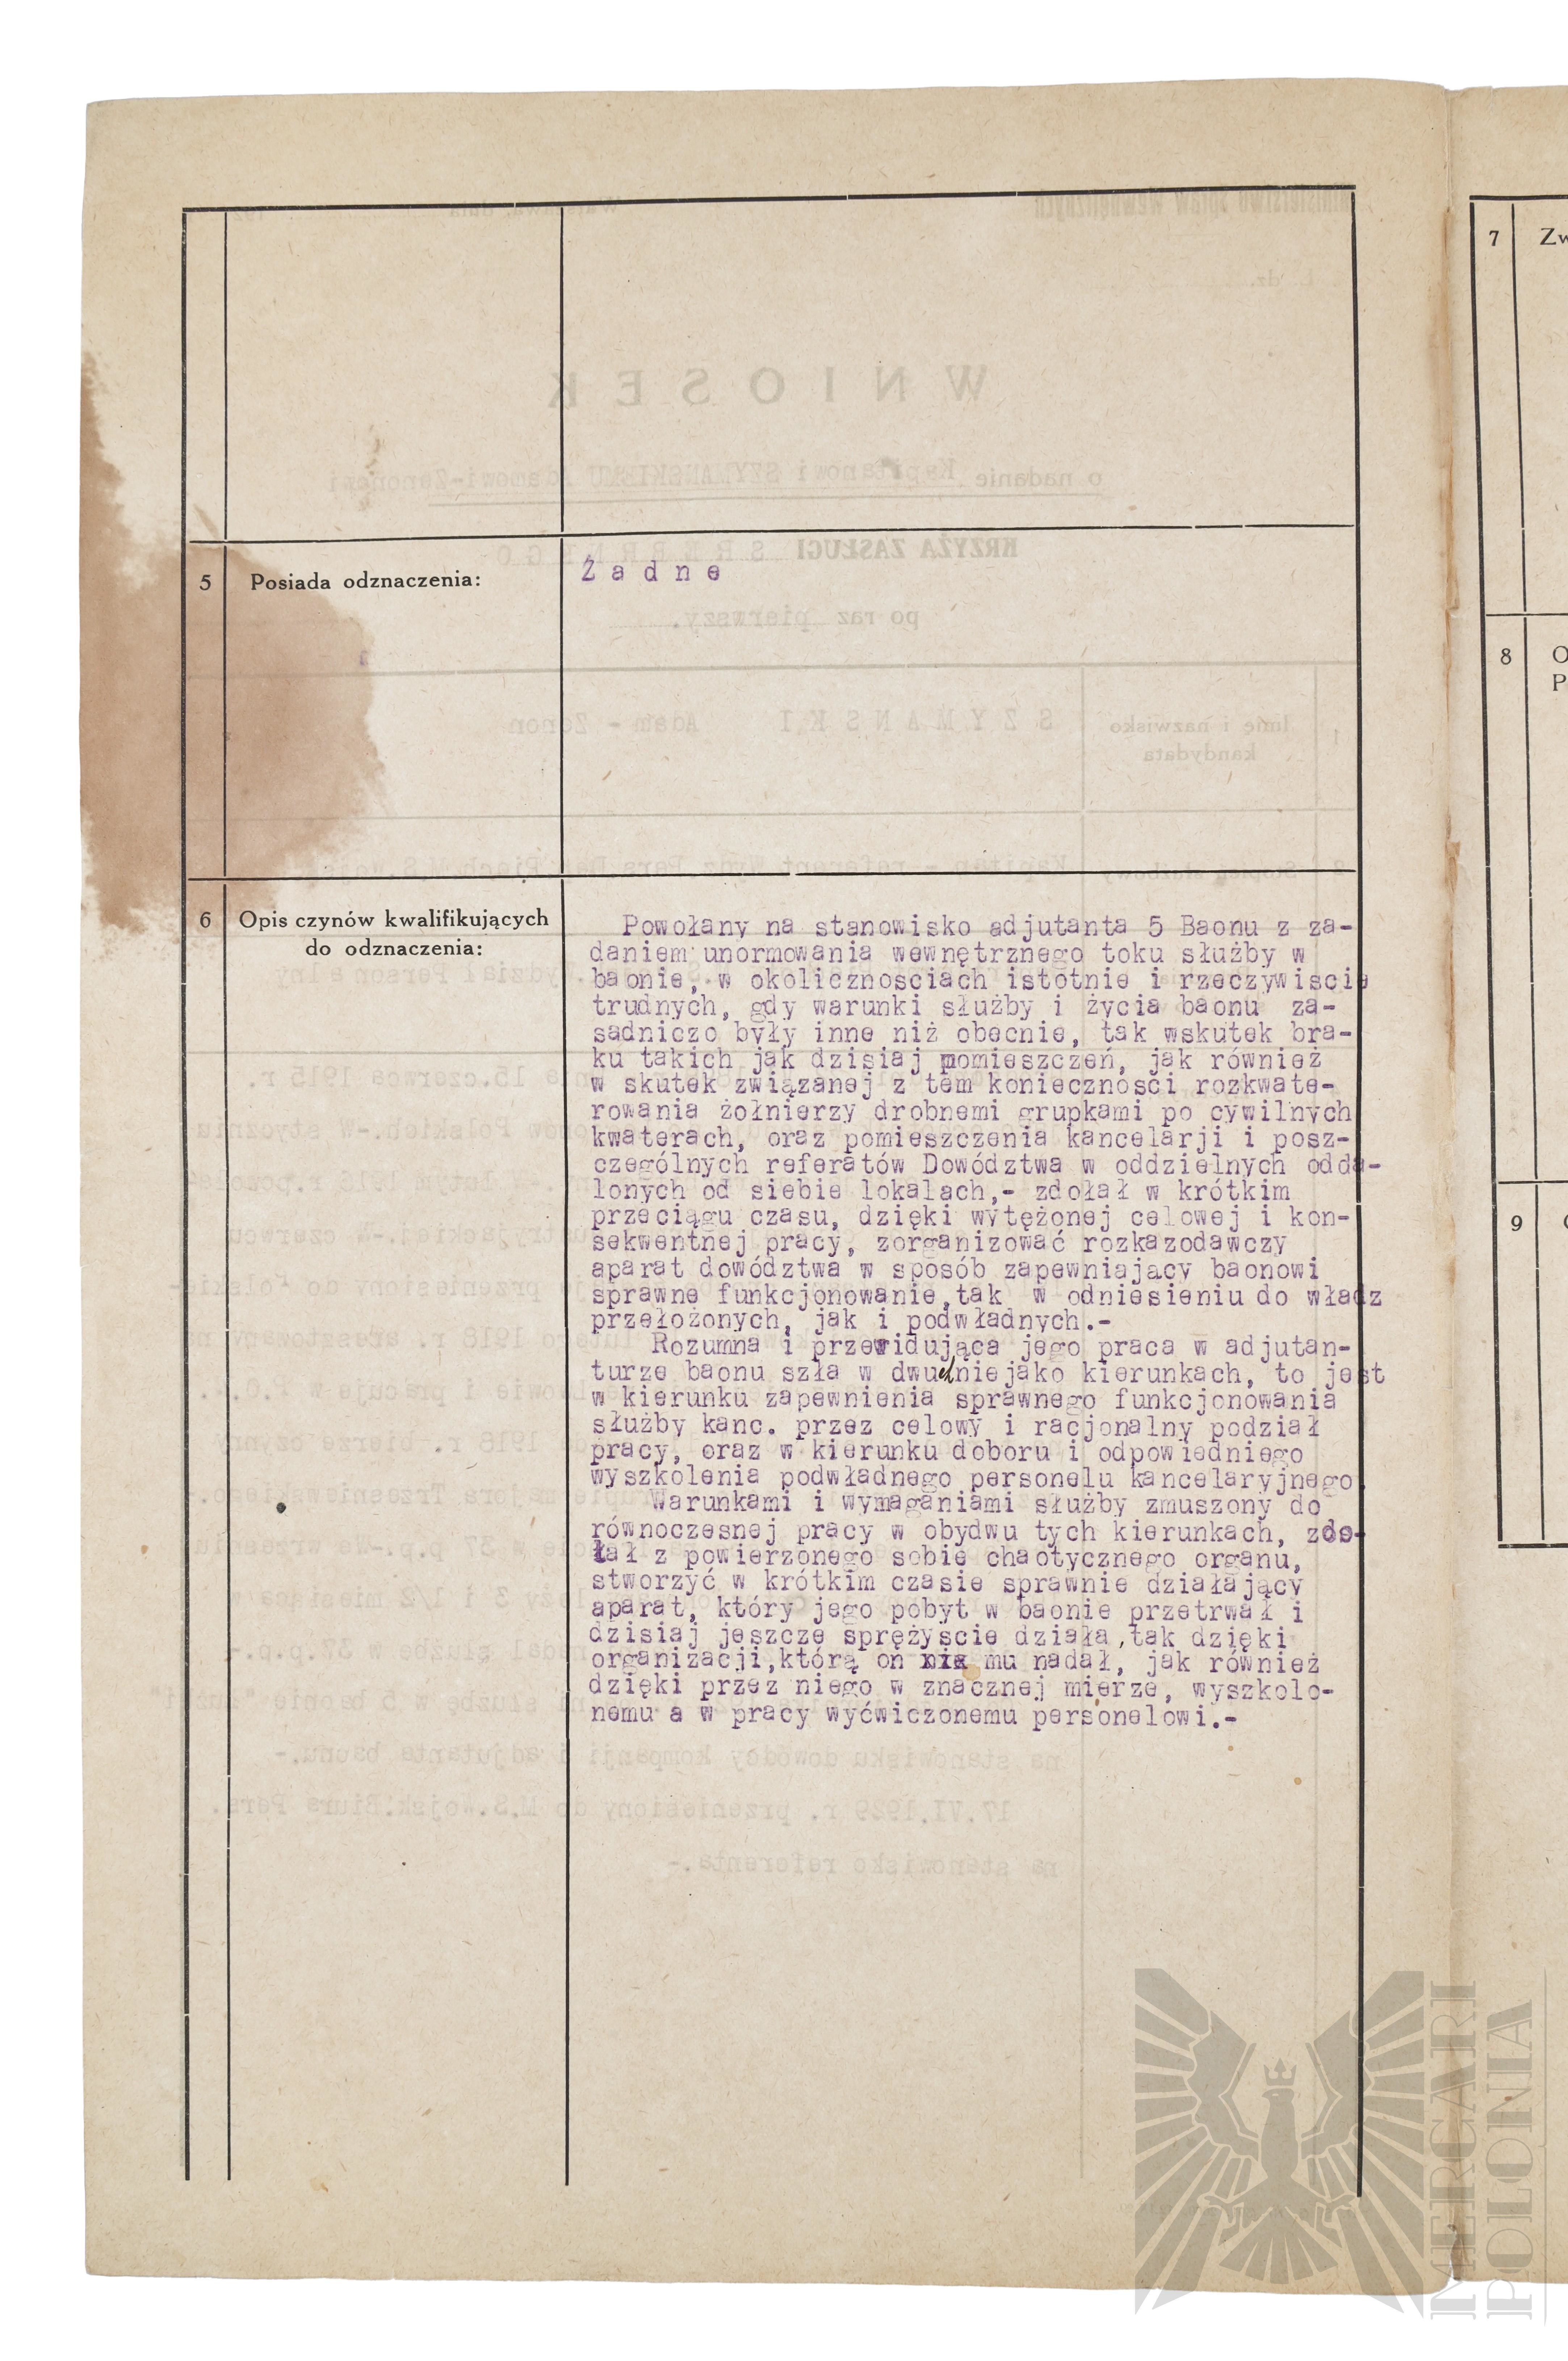 5 Posiada odznaczenia:
Żadne
6 Opis czynów kwalifikujących
do odznaczenia:
Powołany na stanowisko adjutanta 5 Baonu z za-
daniem unormowania wewnętrznego toku służby w
baonie, w okolicznosciach istotnie i rzeczywiscie
trudnych, gdy warunki służby i życia baonu za-
sadniczo były inne niż obecnie, tak wskutek bra-
ku takich jak dzisiaj pomieszczeń, jak również
w skutek związanej z tem konieczności rozkwate-
rowania żołnierzy drobnemi grupkami po cywilnych
kwaterach, oraz pomieszczenia kancelarji i posz-
czególnych referatów Dowództwa w oddzielnych odda-
lonych od siebie lokalach,- zdołał w krótkim
przeciągu czasu, dzięki wytężonej celowej i kon-
sekwentnej pracy, zorganizować rozkazodawczy
aparat dowództwa w sposób zapewniający baonowi
sprawne funkcjonowanie, tak w odniesieniu do władz
przełożonych, jak i podwładnych.-
Rozumna i przewidująca jego praca w adjutan-
turze baonu szła w dwu niejako kierunkach, to jest
w kierunku zapewnienia sprawnego funkcjonowania
służby kanc. przez celowy i racjonalny podział
pracy, oraz w kierunku doboru i odpowiedniego
wyszkolenia podwładnego personelu kancelaryjnego.
Warunkami i wymaganiami służby zmuszony do
równoczesnej pracy w obydwu tych kierunkach, zdo-
łał z powierzonego sobie chaotycznego organu,
stworzyć w krótkim czasie sprawnie działający
aparat, który jego pobyt w baonie przetrwał i
dzisiaj jeszcze sprężyscie działa, tak dzięki
organizacji, którą on mu nadał, jak również
dzięki przez niego w znacznej mierze, wyszkolo-
nemu a w pracy wyćwiczonemu personelowi.-
7 Zw
8 O
P
9
MERCARI
POLONIA